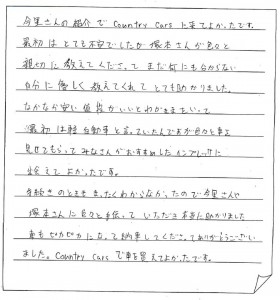 今里さんの紹介で Country Cars に来てよかったです。
最初はとても不安でしたが塚本さんが色々と
親切に教えてくださって まだ何にも分からない
自分に優しく教えてくれて とても助かりました。
なかなか安い値段がいいとわがままをいって
最初は軽自動車と言っていたんですが色々と車を
見せてもらって みなさんがおすすめした インプレッサに
出会えて よかったです。
手続きのときも まったくわからなかったので今里さんや
塚本さんに色々と手伝って いただき 本当に助かりました
車もピカピカになって納車してくださってありがとうござい
ました。Country Carsで車を買えてよかったです。